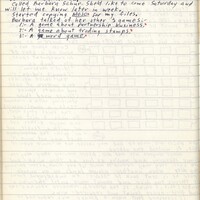 Called Barbara Schur. She'd like to come Saturday and
will let me know later in week.
Started copying for my files.
Barbara talked of her other 3 games:-
1:- A game about partnership business.
2:- A game about trading stamps.
3:- A word game